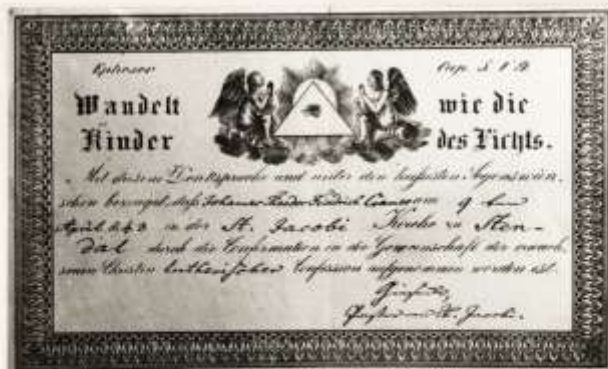 Epheser Cap. 5 V. 9
Wandelt wie die
Kinder des Lichts.
Mit diesem Denkspruche und unter den Segenswün-
schen bezeugt, daß Friedrich am 9 ten
April in der St. Jacobi Kirche zu Sten-
dal durch die Confirmation in die Gemeinschaft der erwach-
senen Christen lutherischer Confession aufgenommen worden ist.
St. Jacobi.